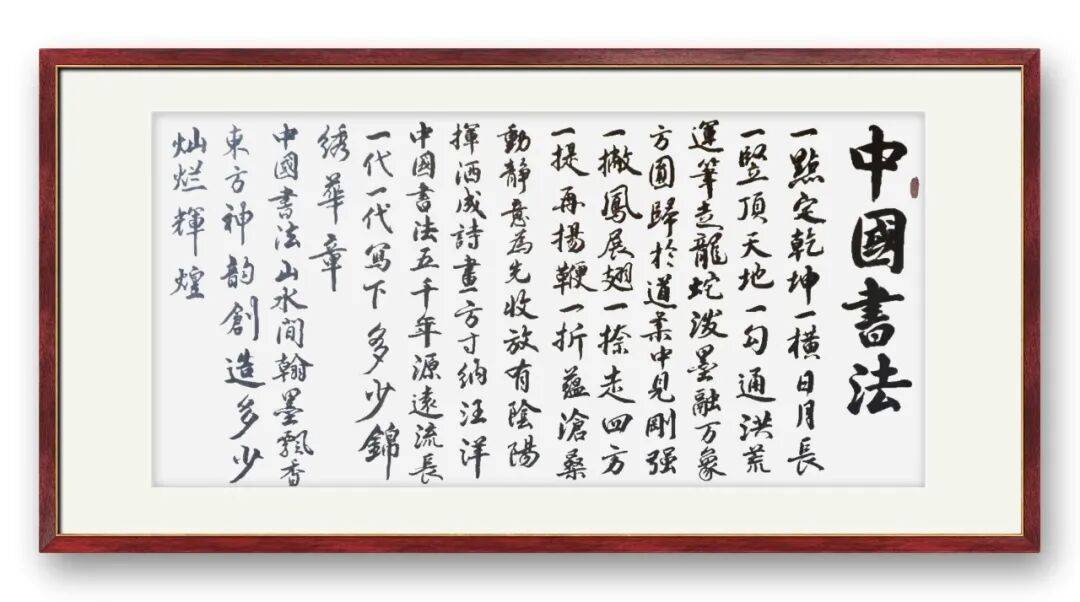 中國書法
一點定乾坤一橫日月長
一竪頂天地一勾通洪荒
運筆走龍蛇潑墨融万象
方圓歸於道柔中見剛强
一撇鳳展翅一捺走四方
一提再揚鞭一折蘊滄桑
動静意為先收放有陰陽
揮洒成詩畫方寸纳汪洋
中國書法五千年源遠流長
一代一代寫下多少錦
绣華章
中國書法山水间翰墨飄香
東方神韵創造多少
灿烂輝煌